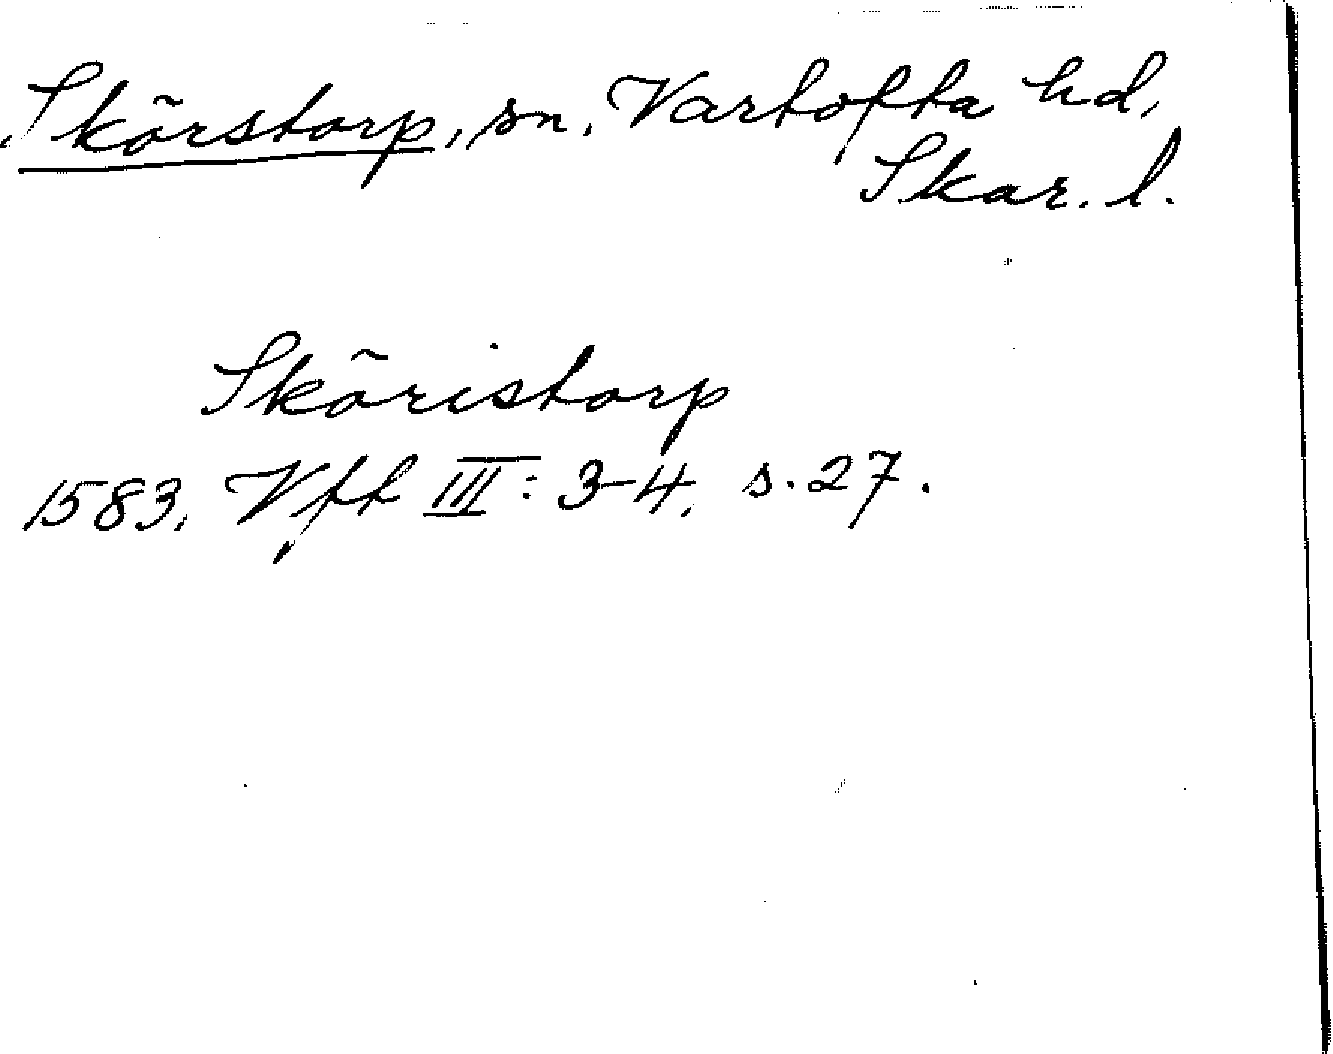 Skörstorp, sn, Vartofta hd,
Skar. l.
Sköristorp
1583, Vft III: 3-4, s. 27.